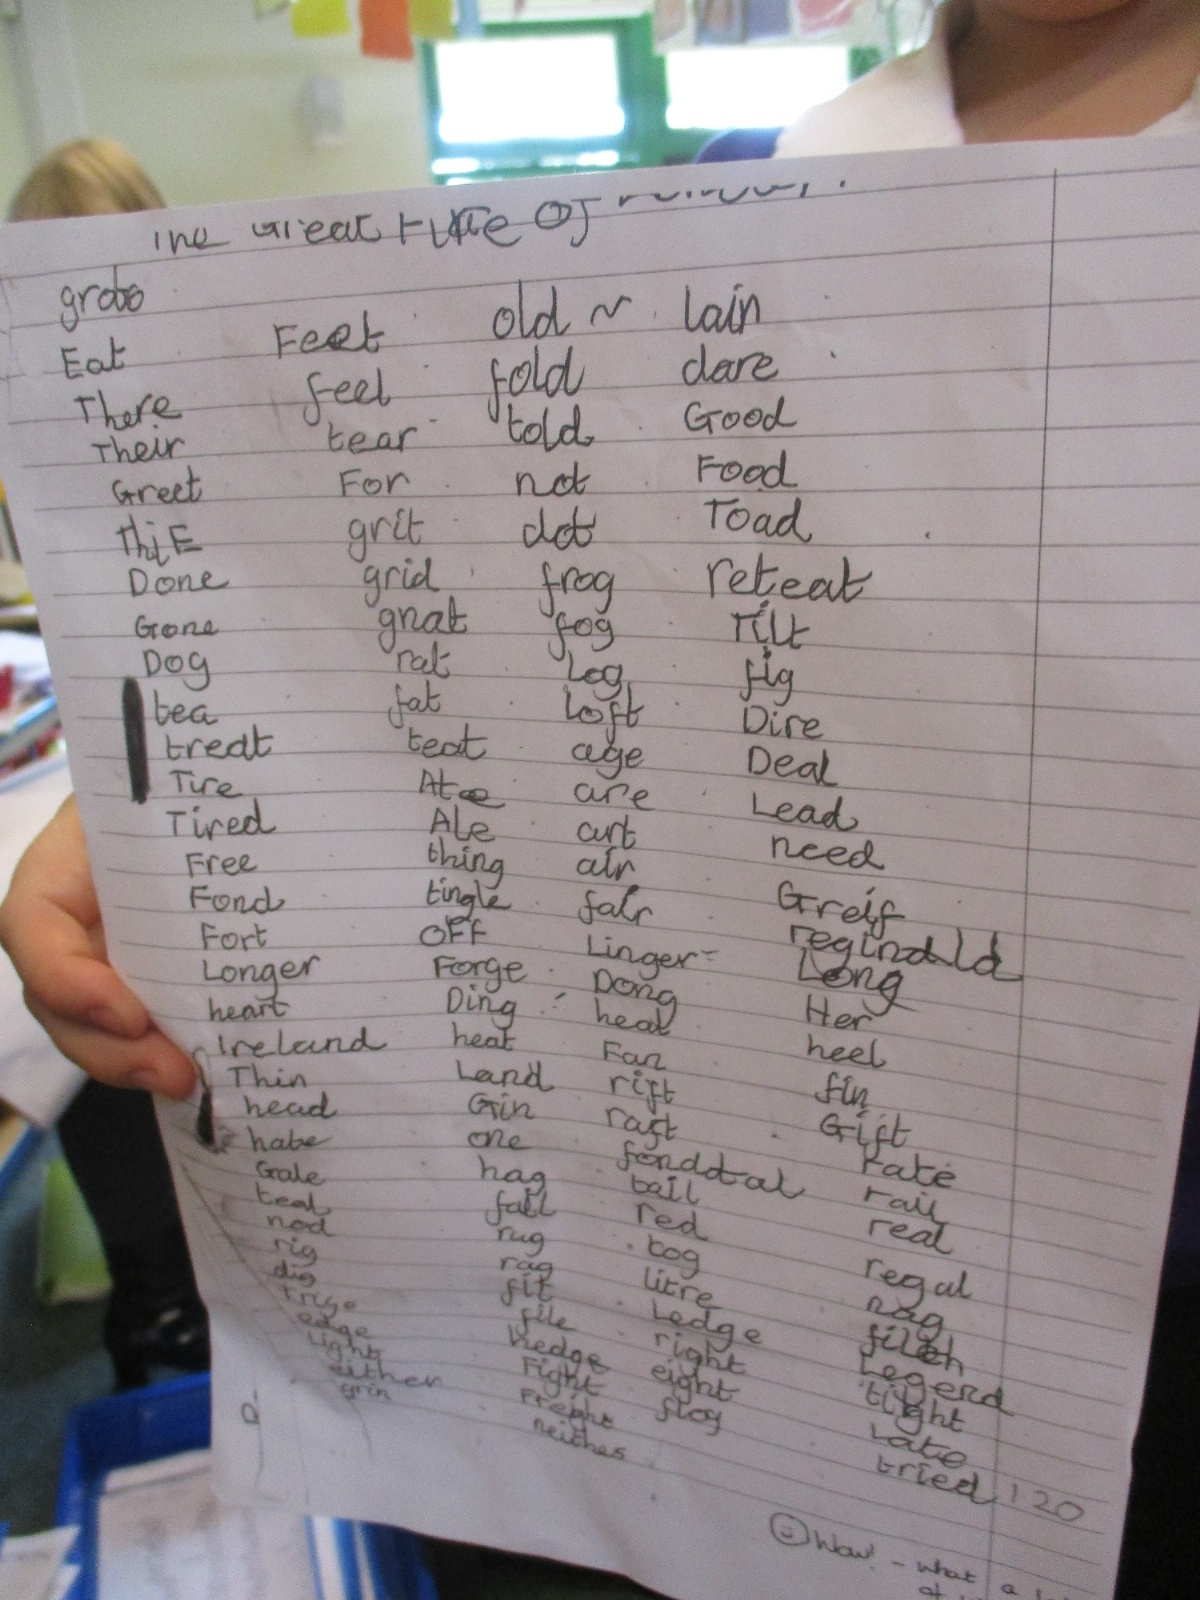 The Great Fire of
grobo
Eat Feet old ~ lain
There feel fold dare
Their tear told Good
Greet For not Food
thiE grit dot Toad
Done grid frog reteat
Gone gnat fog Tilt
Dog rat Log fig
tea fat Loft Dire
treat teat age Deal
Tire Ate are Lead
Tired Ale art need
Free thing air Greif
Fond tingle fair reginald
Fort OFF Linger Long
Longer Forge Dong Her
heart Ding heal heel
Ireland heat Fan fin
Thin Land rift Gift
head Gin raft rate
hate one fonddtal rail
Gale hag tail real
teal fall red regal
nod rug tog nag
rig rag litre
dig fit Ledge Legend
file right tight
edge Hedge eight Late
Light Fight flog tried 120
either
grin neither
Wow! - what a
of